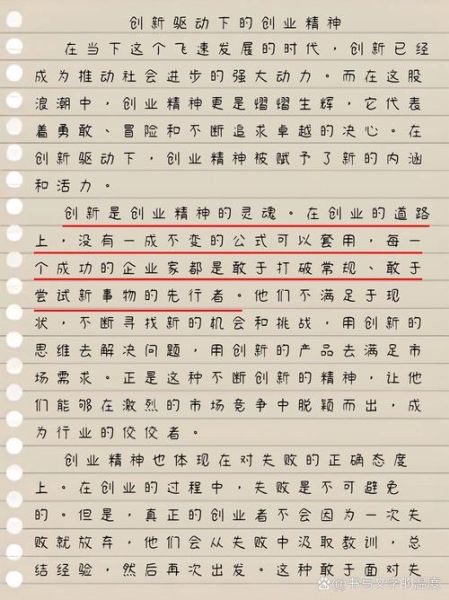 创新驱动下的创业精神
在当下这个飞速发展的时代，创新已经
成为推动社会进步的强大动力。而在这股
浪潮中，创业精神更是熠熠生辉，它代表
着勇敢、冒险和不断追求卓越的决心。在
创新驱动下，创业精神被赋予了新的内涵
和活力。
创新是创业精神的灵魂。在创业的道路
上，没有一成不变的公式可以套用，每一
个成功的企业家都是敢于打破常规、敢于
尝试新事物的先行者。他们不满足于现
状，不断寻找新的机会和挑战，用创新的
思维去解决问题，用创新的产品去满足市
场需求。正是这种不断创新的精神，让他
们能够在激烈的市场竞争中脱颖而出，成
为行业的佼佼者。
创业精神也体现在对失败的正确态度
上。在创业的过程中，失败是不可避免
的。但是，真正的创业者不会因为一次失
败就放弃，他们会从失败中汲取教训，总
结经验，然后再次出发。这种敢于面对失
@书写文字的温度